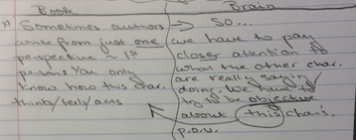 Book
Brain
Sometimes authors → So...
write from just one
perspective ~ 1st
person. You only
know how this char.
thinks/feels/acts
we have to pay
closer attention to
what the other char.
are really saying/
doing. We have to
try to be objective
about this char's.
p.o.v.